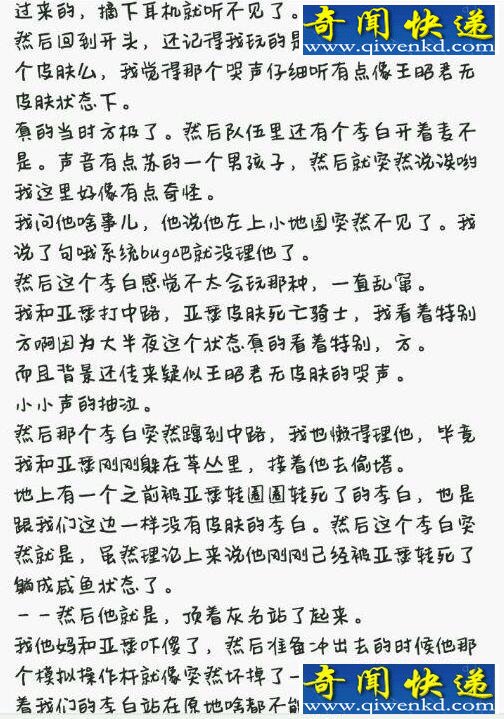 过来的，摘下耳机就听不见了。
奇闻快递
www.qiwenkd.com
然后回到开头，还记得我玩的是
个皮肤么，我觉得那个哭声仔细听有点像王昭君无
皮肤状态下。
真的当时方极了。然后队伍里还有个李白开着麦不
是。声音有点苏的一个男孩子，然后就突然说诶哟
我这里好像有点奇怪。
我问他啥事儿，他说他左上小地图突然不见了。我
说了句哦系统bug吧就没理他了。
然后这个李白感觉不太会玩那种，一直乱窜。
我和亚瑟打中路，亚瑟皮肤死亡骑士，我看着特别
方啊因为大半夜这个状态真的看着特别，方。
而且背景还传来疑似王昭君无皮肤的哭声。
小小声的抽泣。
然后那个李白突然蹿到中路，我也懒得理他，毕竟
我和亚瑟刚刚躲在草丛里，接着他去偷塔。
地上有一个之前被亚瑟转圈圈转死了的李白，也是
跟我们这边一样没有皮肤的李白。然后这个李白突
然就是，虽然理论上来说他刚刚已经被亚瑟转死了
躺成咸鱼状态了。
－－然后他就是，顶着灰名站了起来。
我他妈和亚瑟吓傻了，然后准备冲出去的时候他那
个模拟操作杆就像突然坏掉了一
着我们的李白站在原地啥都不能
奇闻快递
www.qiwenkd.com